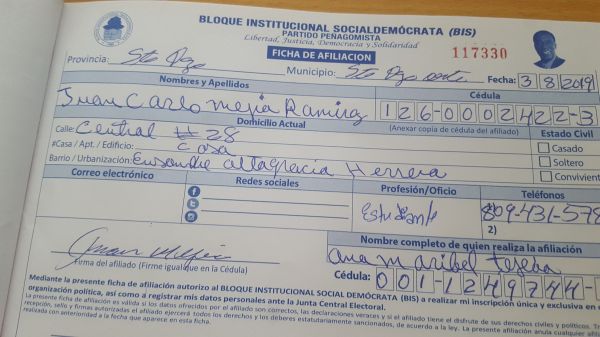 BLOQUE INSTITUCIONAL SOCIALDEMÓCRATA (BIS)
PARTIDO PEÑAGOMISTA
Libertad, Justicia, Democracia y Solidaridad
FICHA DE AFILIACION
117330
Provincia: Sto Dgo Municipio: Sto Dgo Fecha: 3/8/2019
Nombres y Apellidos Cédula
Juan Carlo mejia Ramirez 126-0002422-3
Domicilio Actual (Anexar copia de cédula del afiliado) Estado Civil
Calle: Central # 28 Casado
#Casa / Apt. / Edificio: Casa Soltero
Barrio / Urbanización: altagracia Herrera Convivient
Correo electrónico Redes sociales Profesión/Oficio Teléfonos
Estudiante 809-431-578
2)
Nombre completo de quien realiza la afiliación
ana maribel
Firma del afiliado (Firme igual que en la Cédula)
Cédula: 001-1249744-
Mediante la presente ficha de afiliación autorizo al BLOQUE INSTITUCIONAL SOCIALDEMÓCRATA (BIS) a realizar mi inscripción única y exclusiva en e
organización política, así como a registrar mis datos personales ante la Junta Central Electoral.
La presente ficha de afiliación es válida si los datos ofrecidos por el afiliado son correctos, las declaraciones veraces y si el afiliado tiene el disfrute de sus derechos civiles y políticos. Tr
recepción, sello y firmas autorizadas el afiliado ejercerá todos los derechos y los deberes estatutariamente sancionados, de acuerdo a la ley. La presente afiliación anula cualquier afiliac
realizada con anterioridad a la fecha que aparece en esta ficha.